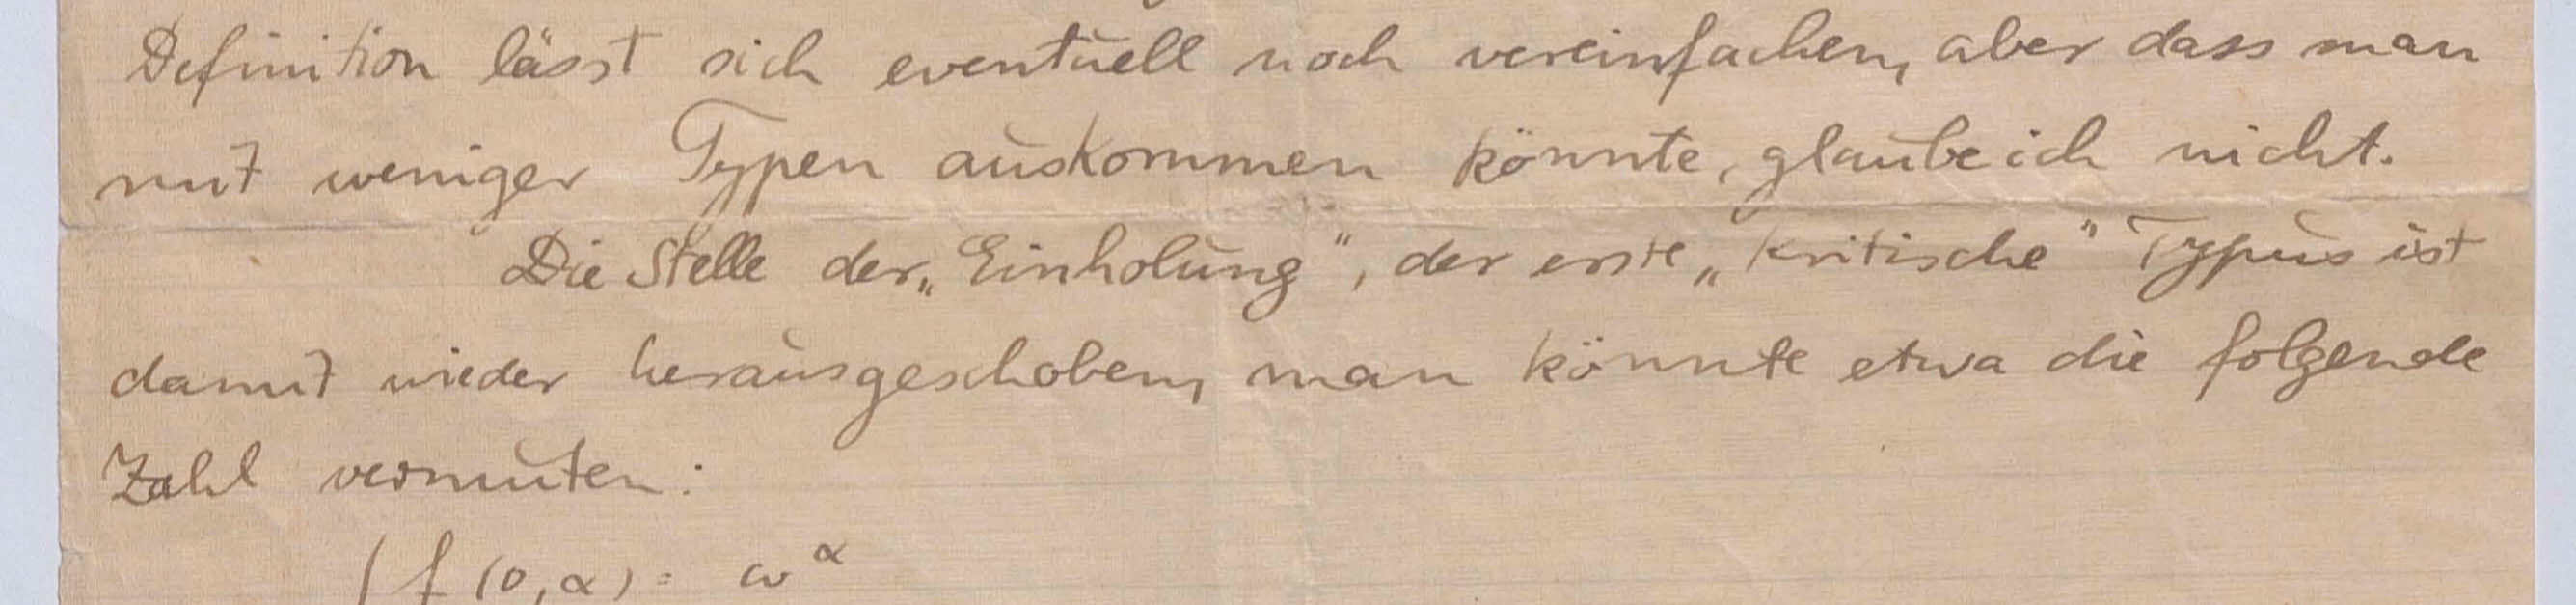 Definition lässt sich eventuell noch vereinfachen, aber dass man
mit weniger Typen auskommen könnte, glaube ich nicht.
Die Stelle der „Einholung", der erste „kritische" Typus ist
damit wieder herausgeschoben, man könnte etwa die folgende
Zahl vermuten:
f(0,α) = ω^α